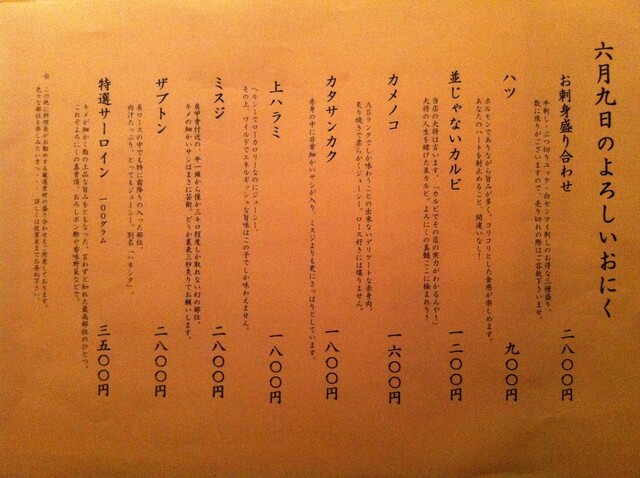 六月九日のよろしいおにく
お刺身盛り合わせ
手刺し、ぶつ切りユッケ・白センマイ刺しのお得な三種盛り。
数に限りがございますので、売り切れの際はご容赦下さいませ。
二八〇〇円
ハツ
ホルモンでありながら旨みが多く、コリコリとした食感が楽しめます。
あなたのハートを射止めること、間違いなし!
九〇〇円
並じゃないカルビ
当店の大将は言います。「カルビでその店の実力がわかるんや!」
大将の人生を賭けた並カルビ。よろにくの真髄ここに極まれり!
一二〇〇円
カメノコ
A5ランクでしか味わうことの出来ないデリケートな赤身肉。
炙り焼きで柔らかくジューシー。ロース好きには堪りません。
一六〇〇円
カタサンカク
赤身の中に非常細かいサシが入り、ミスジよりも更にさっぱりとしています。
一八〇〇円
上ハラミ
ヘルシーでローカロリーなのにジューシー。
その上、ワイルドでエネルギッシュな旨味はこの子でしか味わえません。
一八〇〇円
ミスジ
肩甲骨付近の、牛一頭から僅か三キロ程度しか取れない幻の部位。
キメの細かいサシはまさに芸術。どうか裏表三秒炙りでお願いします。
二八〇〇円
ザブトン
肩ロースの中でも特に霜降りの入った部位。
肉汁たっぷり、とってもジューシー。別名「ハネシタ」。
二八〇〇円
特選サーロイン 一〇〇グラム
キメが細かく脂の上品な旨みをともなった、言わずと知れた最高部位のひとつ。
これぞよろにくの真骨頂。おろしポン酢や香味野菜などで。
三五〇〇円
※ この他に料理長がお勧めする厳選素材の盛り合わせもご用意しております。
色々な部位を楽しみたい方へ・・・ 詳しくは従業員までお尋ね下さい。